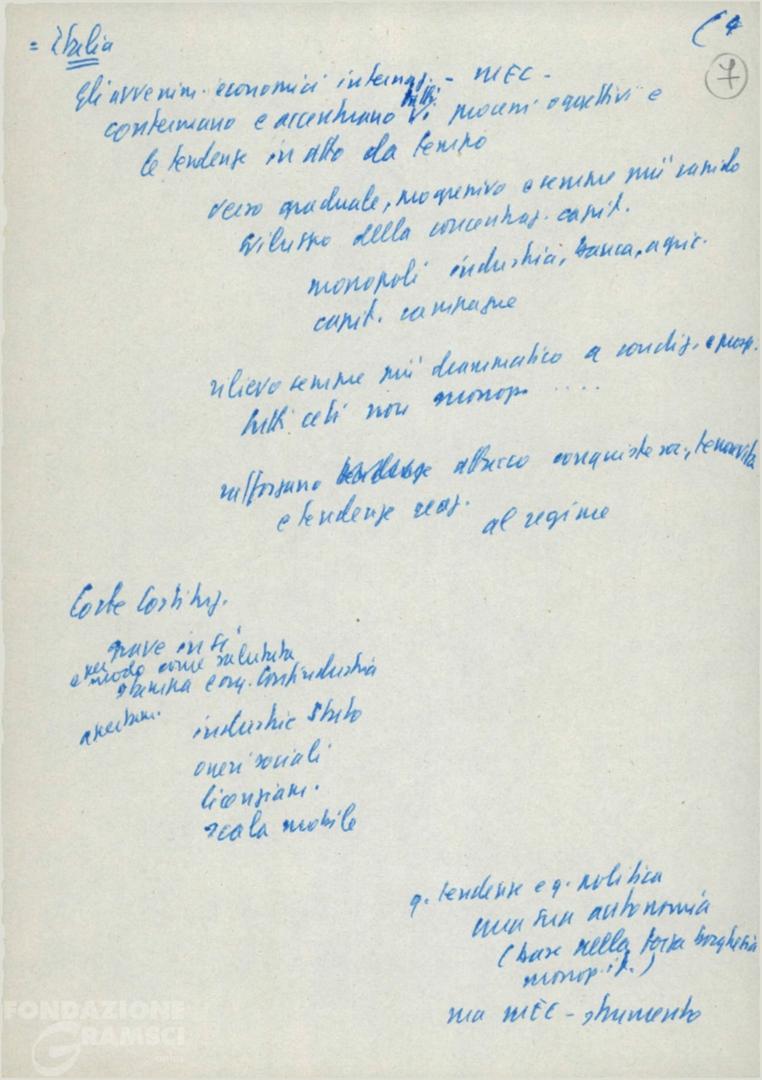 = Italia
( 4
7
Gli avvenim. economici internaz. - MEC -
confermano e accentuano tutti i processi oggettivi e
le tendenze in atto da tempo
verso graduale, progressivo e sempre più rapido
sviluppo della concentraz. capit.
monopoli industria, banca, agric.
capit. campagne
rilievo sempre più drammatico a condiz. e prosp.
tutti ceti non monop. ....
rafforzano attacco conquiste soc.,
e tendenze reaz.
al regime
Corte Costituz.
grave in sé
e per modo come salutata
stampa e org. Confindustria
industrie Stato
oneri sociali
licenziam.
scala mobile
q. tendenze e q. politica
una sua autonomia
(base nella forza borghesia
monop. it.)
ma MEC - strumento
FONDAZIONE
GRAMSCI
onlus